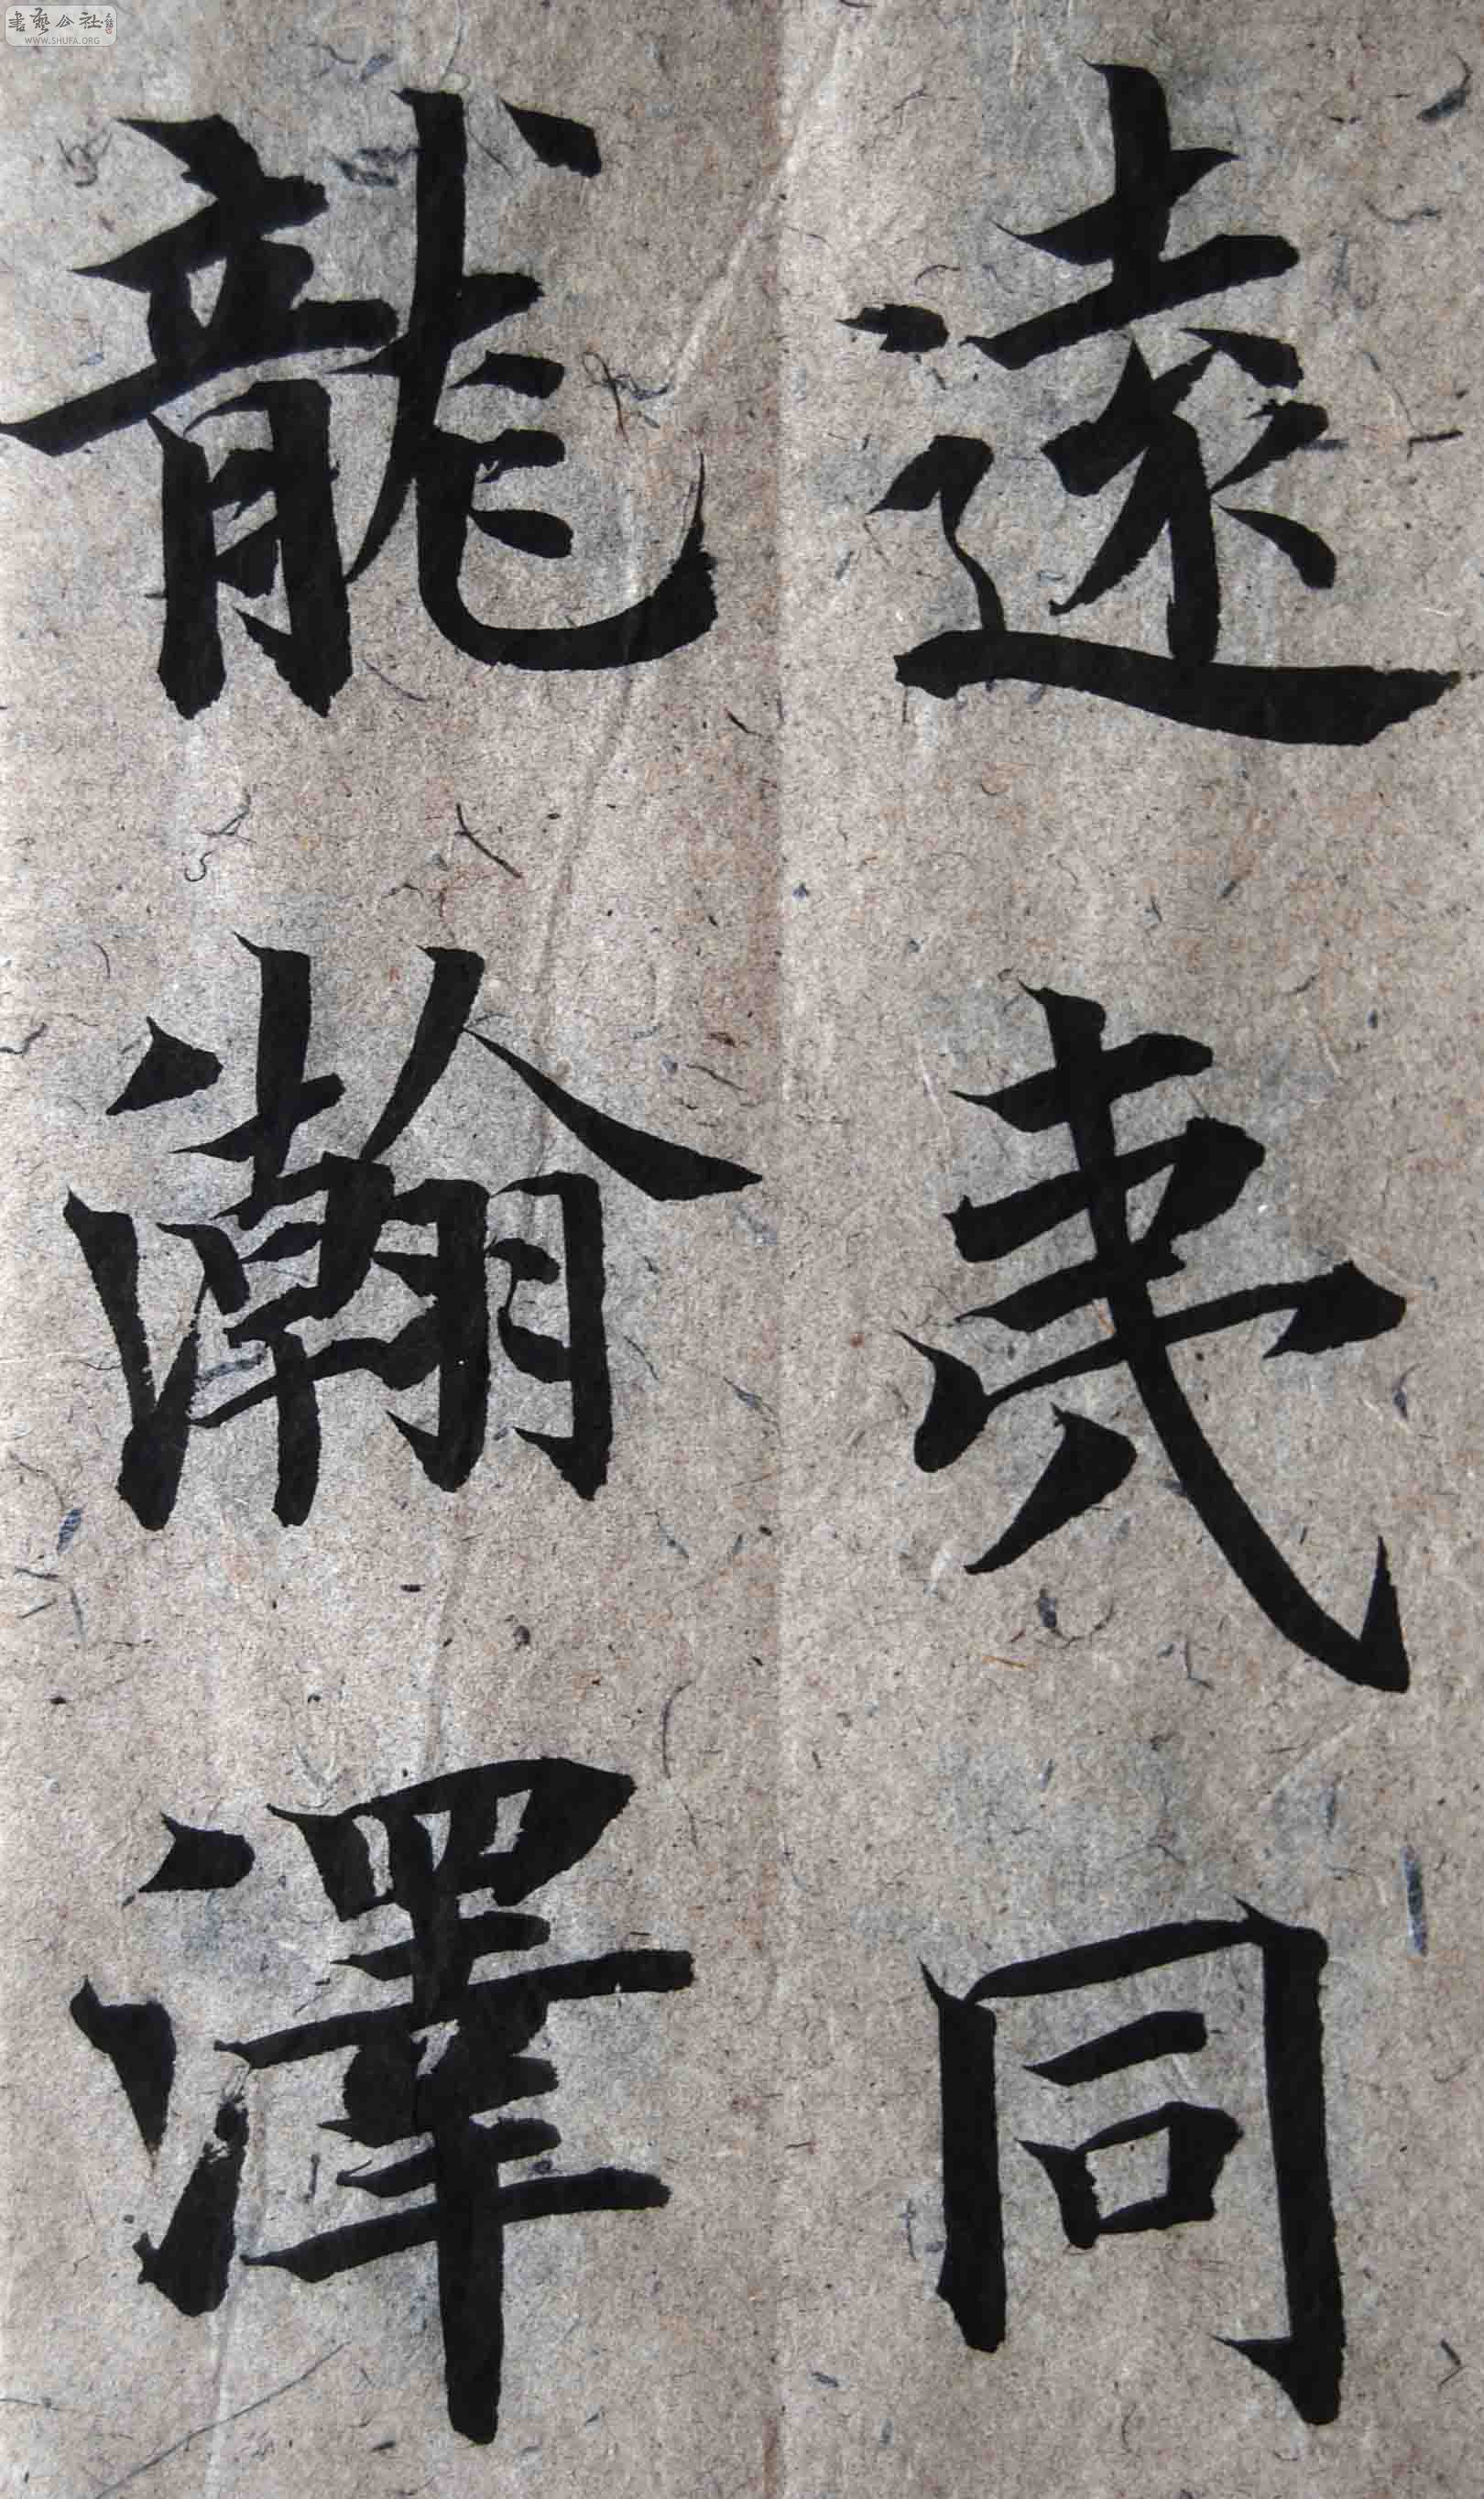 書藝公社
WWW.SHUFA.ORG
遠同
龍瀚澤